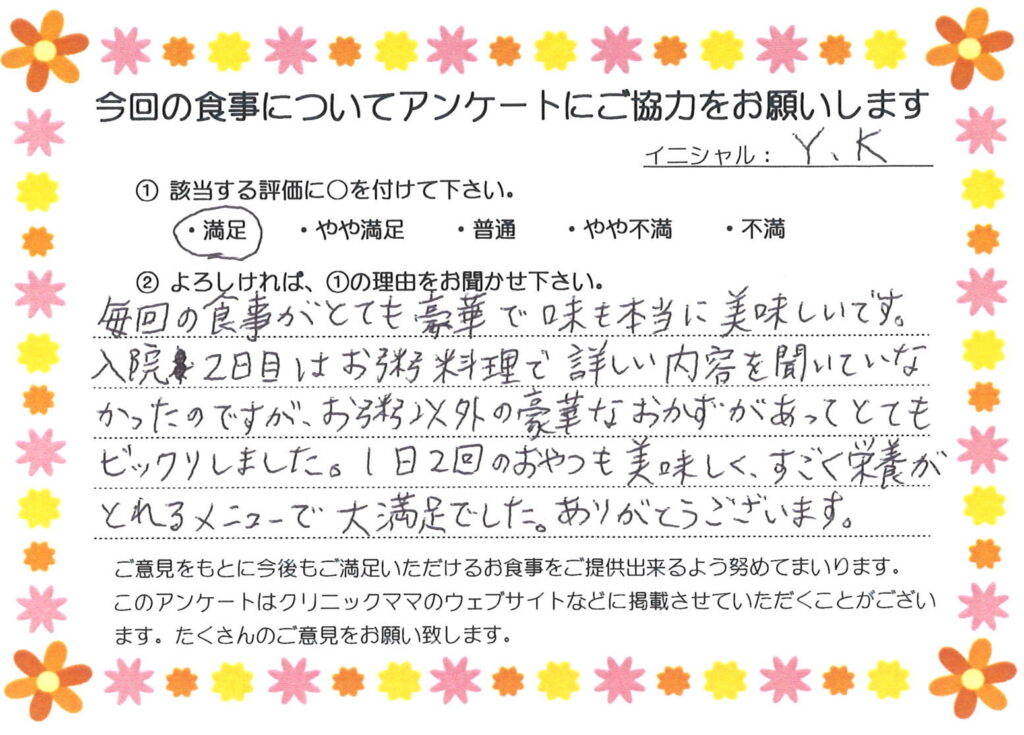 今回の食事についてアンケートにご協力をお願いします
イニシャル： Y、K
① 該当する評価に○を付けて下さい。
・満足 ・やや満足 ・普通 ・やや不満 ・不満
② よろしければ、①の理由をお聞かせ下さい。
毎回の食事がとても豪華で味も本当に美味しいです。
入院2日目はお粥料理で詳しい内容を聞いていな
かったのですが、お粥以外の豪華なおかずがあってとても
ビックリしました。1日2回のおやつも美味しく、すごく栄養が
とれるメニューで大満足でした。ありがとうございます。
ご意見をもとに今後もご満足いただけるお食事をご提供出来るよう努めてまいります。
このアンケートはクリニックママのウェブサイトなどに掲載させていただくことがござい
ます。たくさんのご意見をお願い致します。